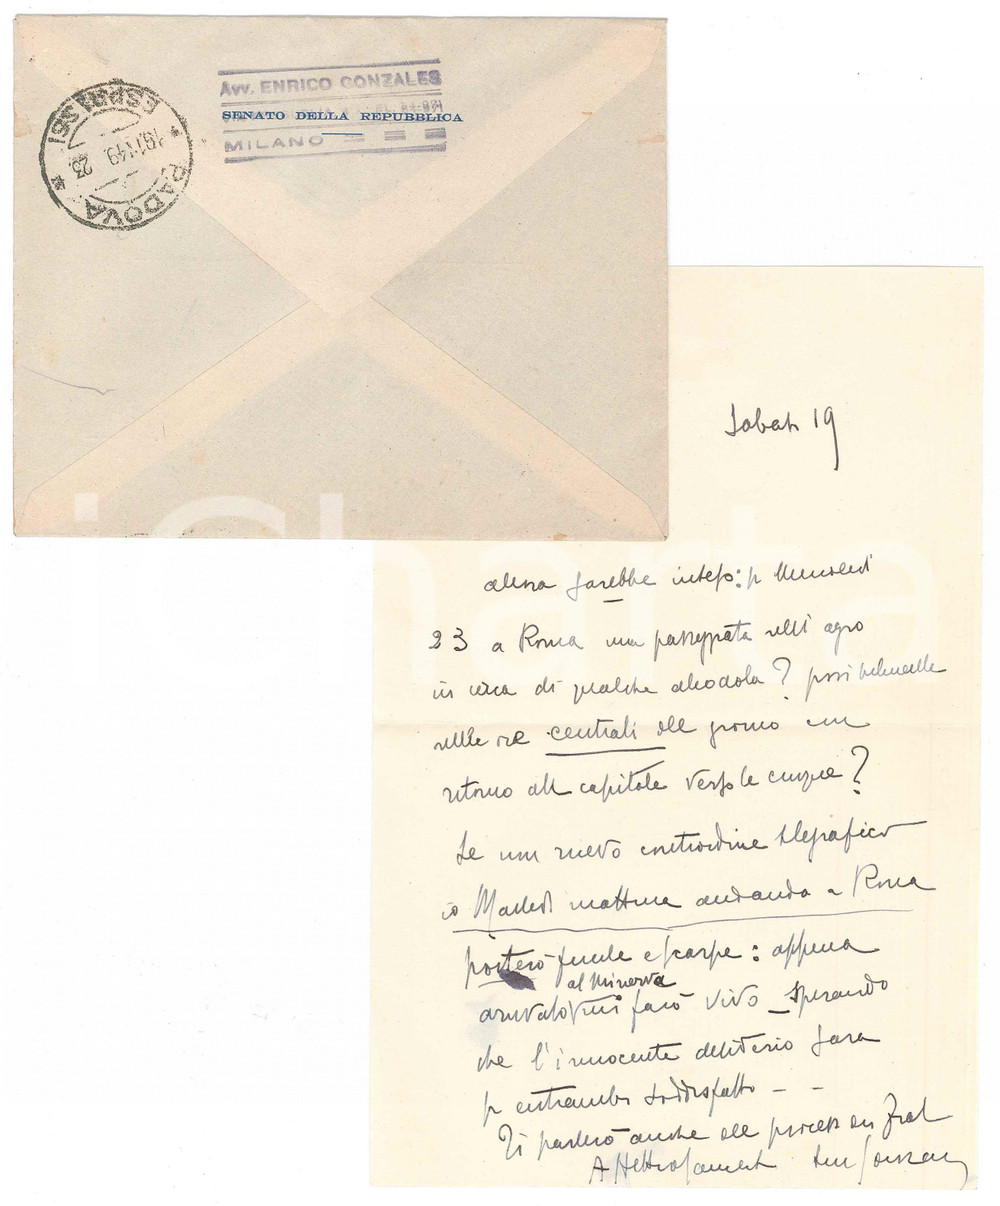 Avv. ENRICO GONZALES
SENATO DELLA REPUBBLICA
MILANO
PADOVA
ESPRESSI
19.11.49 23
iCharta
Sabato 19
sarebbe inteso: p Mercoledì
23 a Roma una passeggiata nell'agro
in cerca di qualche allodola? possibilmente
nelle ore centrali del giorno con
ritorno alla capitale verso le cinque?
Se non ricevo contrordine telegrafico
io Martedì mattina andando a Roma
porterò fucile e scarpe: appena
al Minerva
arrivato mi farò vivo _ sperando
che l'innocente desiderio sarà
p entrambi soddisfatto - -
Ti parlerò anche del processo
Affettuosamente tuo Gonzales